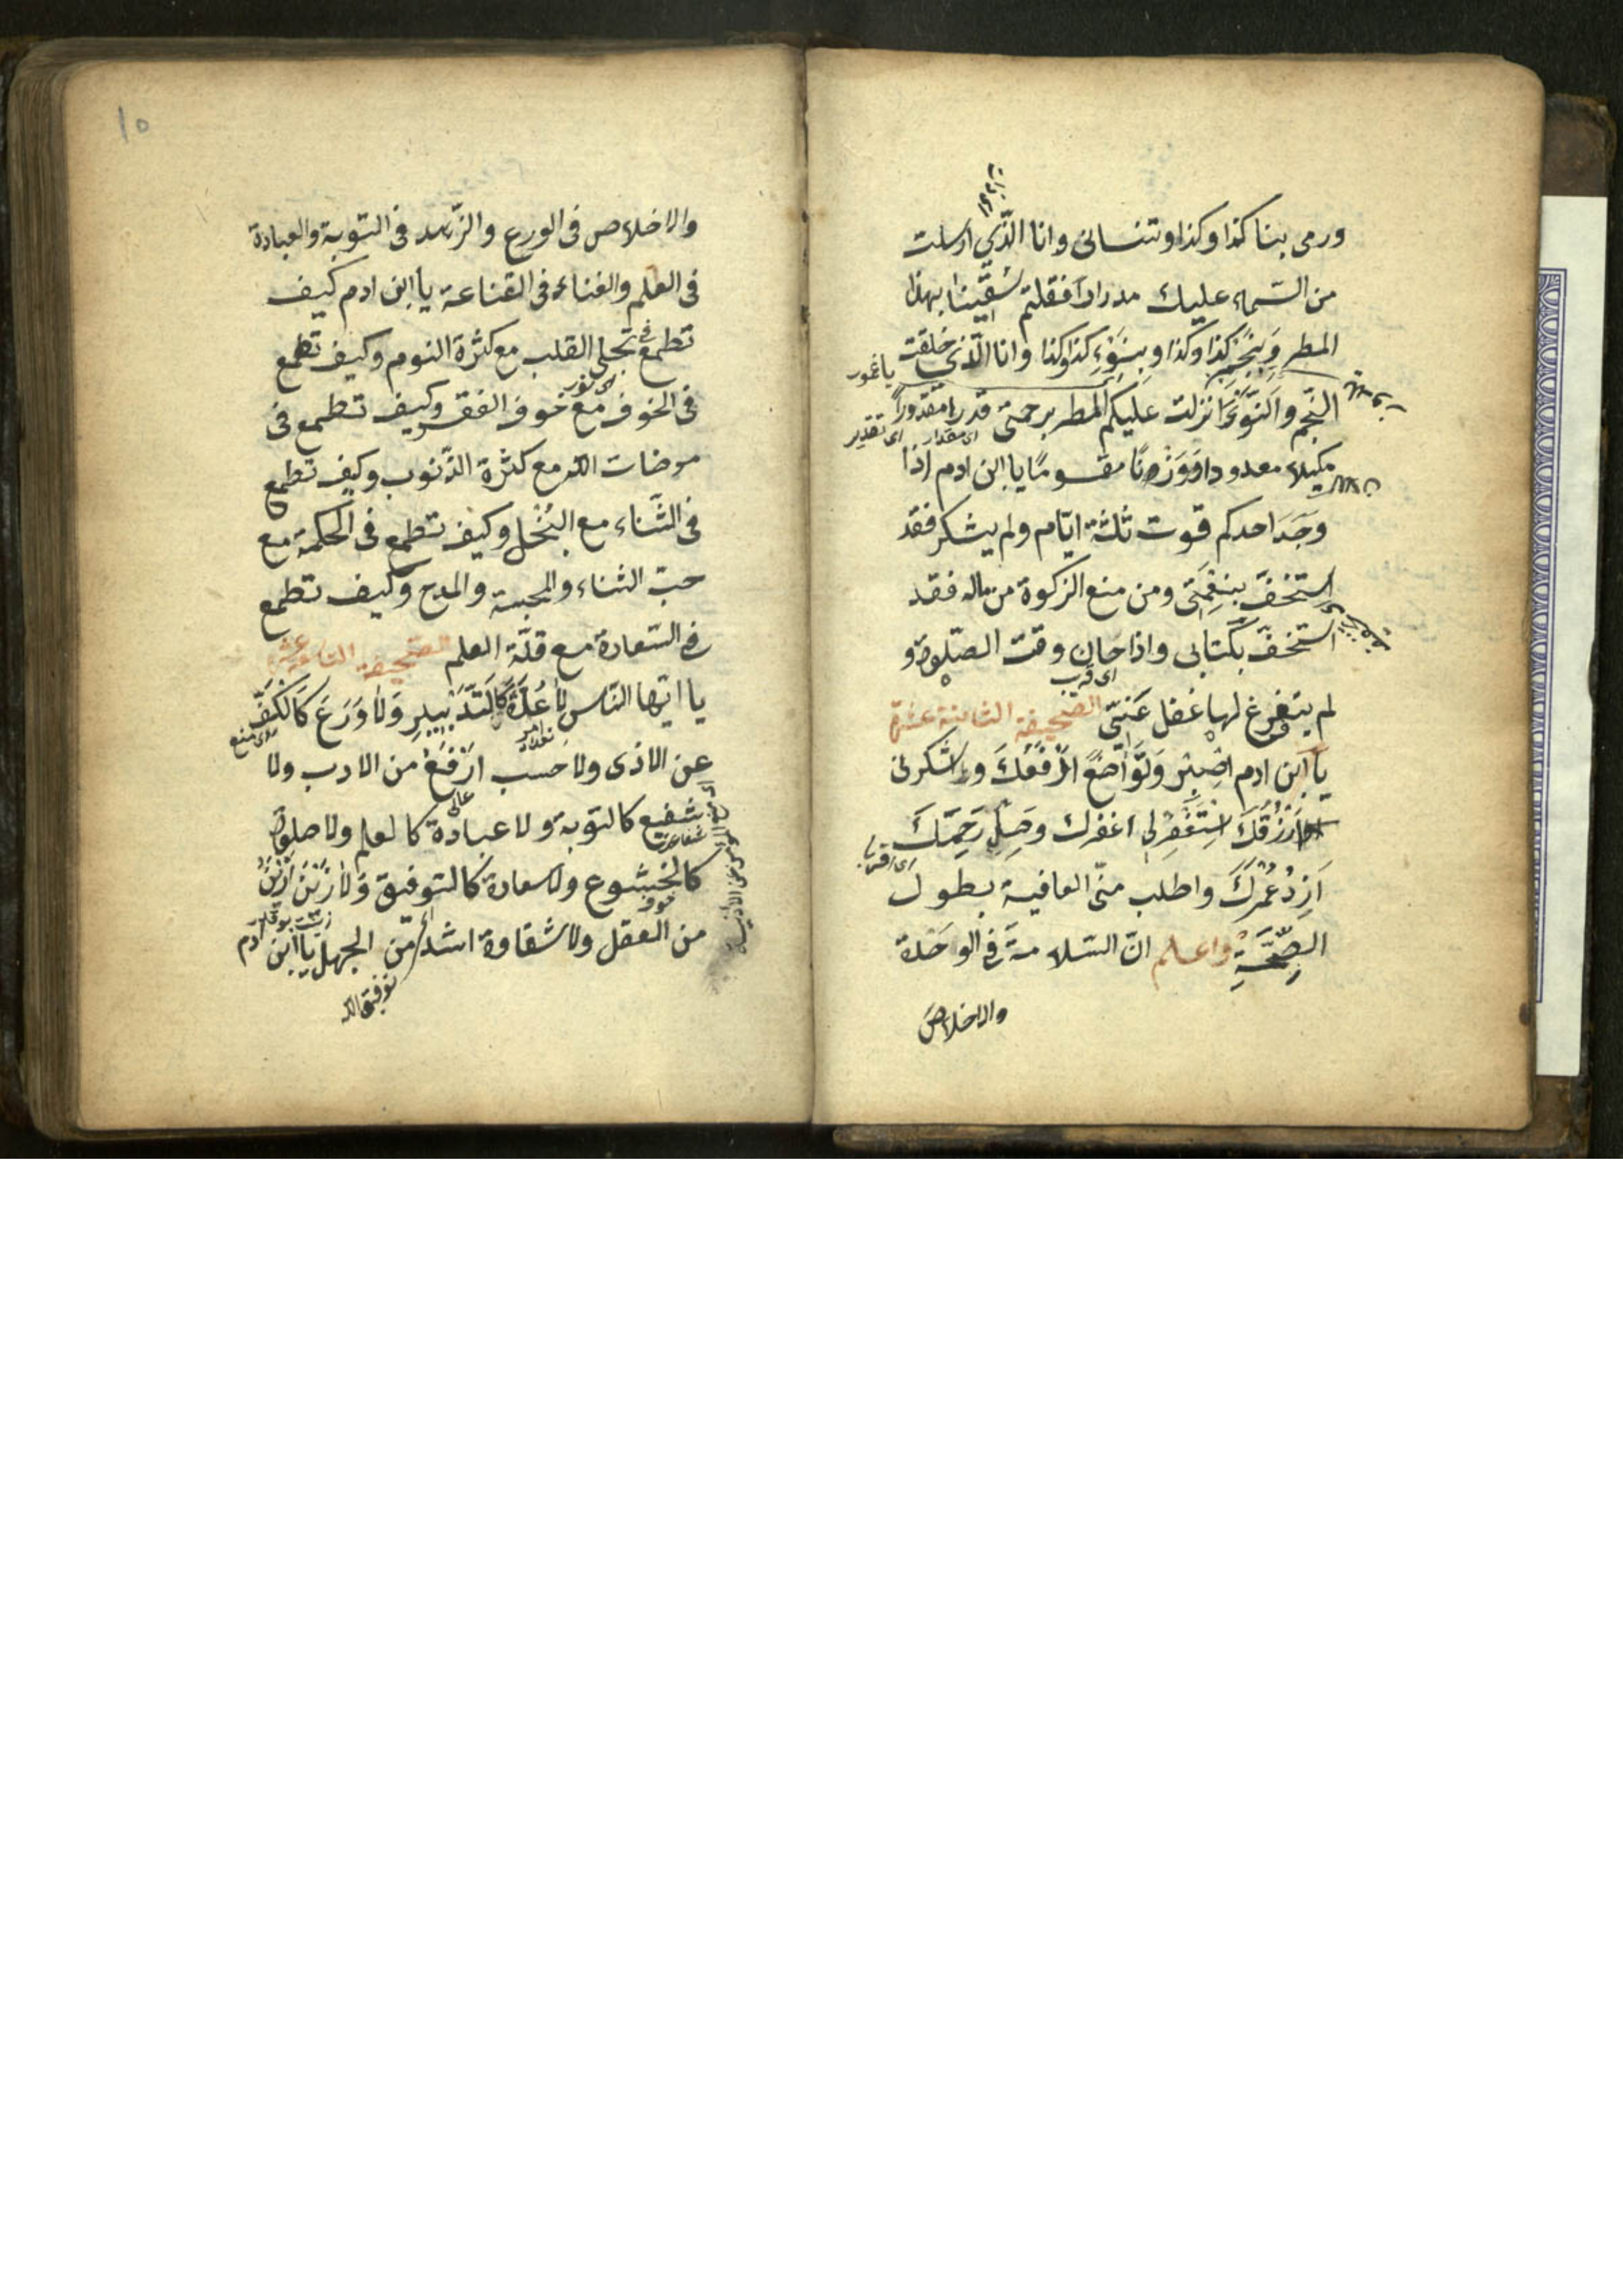 ورمى بنا كذا وكذا وتنسانى وانا الّذي ارسلت
من السّماء عليك مدرارا فقلتم سقينا بهذا
المطر وبنجم كذا وكذا وبنوء كذا وكذا وانا الّذى خلقت
النّجم والنّوء انزلت عليكم المطر برحمتى قدرا مقدورا
مكيلا معدودا ووزنا مقسوما يا ابن ادم اذا
وجد احدكم قوت ثلثة ايّام ولم يشكر فقد
استخفّ بنعمتى ومن منع الزكوة من ماله فقد
استخفّ بكتابى واذا حان وقت الصّلوة و
اى قرب
لم يتفرغ لها غفل عنّى الصّحيفة الثامنة عشرة
يا ابن ادم اصبر وتواضع ارفعك واشكرنى
ارزقك استغفرلى اغفرلك وصل رحمك
ازد عمرك واطلب منّى العافية بطول
الصّحّة واعلم انّ السّلامة فى الوحدة
والاخلاص
١٥
والاخلاص فى الورع والزّهد فى التوبة والعبادة
فى العلم والغناء فى القناعة يا ابن ادم كيف
تطمع فى تجلى القلب مع كثرة النوم وكيف تطمع
فى الخوف مع خوف الفقر وكيف تطمع فى
مرضات الله مع كثرة الذّنوب وكيف تطمع
فى الثّناء مع البخل وكيف تطمع فى الحكمة مع
حبّ الثناء والمحبة والمدح وكيف تطمع
فى السّعادة مع قلّة العلم الصّحيفة التاسعة عشر
يا ايّها النّاس لا عدّة كالتّدبير ولا ورع كالكفّ
عن الاذى ولا حسب ارفع من الادب ولا
شفيع كالتوبة ولا عبادة كالعلم ولا صلوة
كالخشوع ولا سعادة كالتوفيق ولا زين ازين
من العقل ولا شقاوة اشدّ من الجهل يا ابن ادم